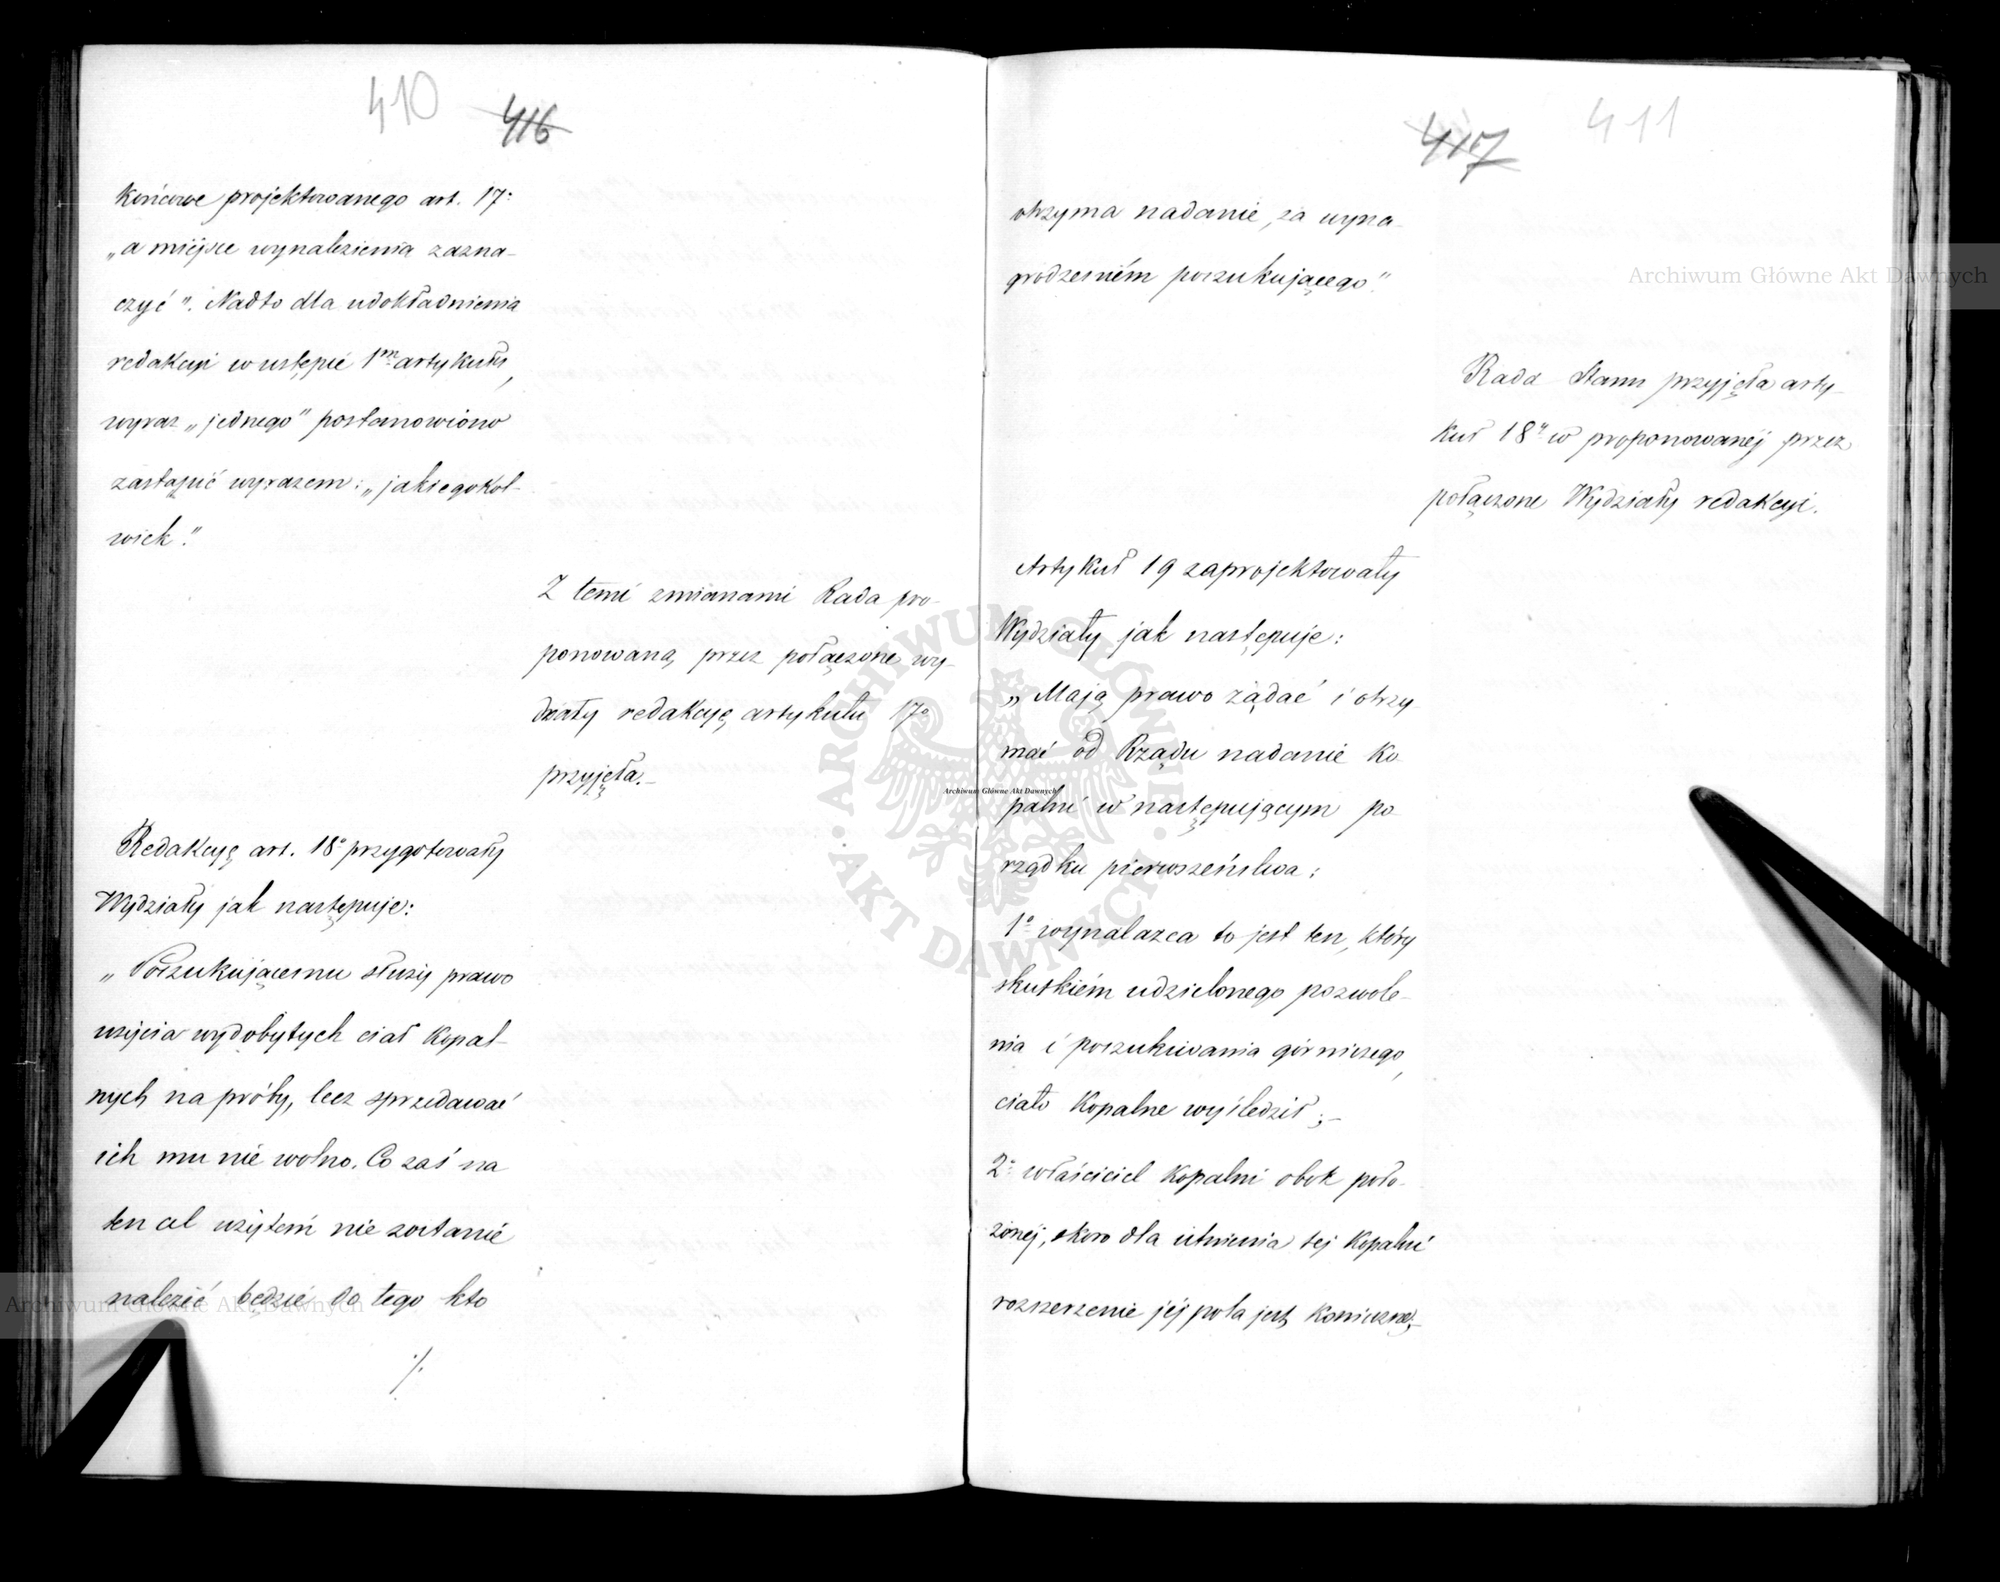 410
416
Końcowe projektowanego art. 17:
„a miéjsce wynalezienia zazna-
czyć". Nadto dla udokładnienia
redakcyi w ustępie 1m artykułu,
wyraz „jednego" postanowiono
zastąpić wyrazem: „jakiegokol-
wiek."
Z temi zmianami Rada pro-
ponowaną przez połączone wy-
działy redakcyę artykułu 17o
przyjęła.-
Redakcyę art. 18o przygotowały
Wydziały jak następuje:
„Poszukującemu służy prawo
użycia wydobytych ciał Kopal-
nych na próby, lecz sprzedawać
ich mu nie wolno. Co zaś na
ten cel użytem nie zostanie
należéć będzie do tego kto
./.
417
411
otrzyma nadanie, za wyna-
grodzeniém poszukującego".
Rada Stanu przyjęła arty-
kuł 18y w proponowanéj przez
połączone Wydziały redakcyi.
Artykuł 19 zaprojektowały
Wydziały jak następuje:
„Mają prawo żądać i otrzy-
mać od Rządu nadanie Ko-
palni w następującym po-
rządku pierwszeństwa:
1o wynalazca to jest ten, który
skutkiém udzielonego pozwole-
nia i poszukiwania górniczego,
ciało Kopalne wyśledził;-
2o właściciel Kopalni obok poło-
żonéj, skoro dla istnienia tej Kopalni
rozszerzenie jéj pola jest Konieczne;-
Archiwum Główne Akt Dawnych
Archiwum Główne Akt Dawnych
Archiwum Główne Akt Dawnych
ARCHIWUM GŁÓWNE AKT DAWNYCH